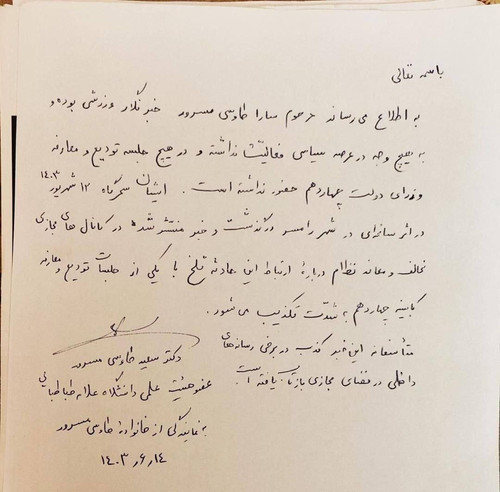 باسمه تعالی
به اطلاع می رساند مرحوم سارا طاوسی مسرور خبرنگار ورزشی بوده و
به هیچ وجه در عرصه سیاسی فعالیت نداشته و در هیچ جلسه تودیع و معارفه
وزرای دولت چهاردهم حضور نداشته است. ایشان سحرگاه ۱۲ شهریور ۱۴۰۳
در اثر سانحه‌ای در شهر رامسر درگذشت و خبر منتشر شده در کانال های مجازی
مخالف و معاند نظام درباره ارتباط این حادثه تلخ با یکی از جلسات تودیع و معارفه
کابینه چهاردهم به شدت تکذیب می شود.
متأسفانه این خبر کذب در برخی رسانه‌های
داخلی در فضای مجازی بازتاب یافته است.
دکتر سعید طاوسی مسرور
عضو هیئت علمی دانشگاه علامه طباطبائی
به نمایندگی از خانواده طاوسی مسرور
۱۴۰۳٫۶٫۱۴